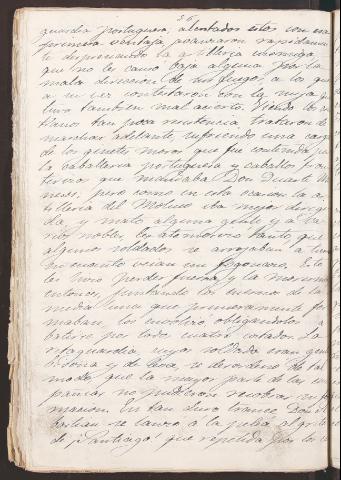 36
guardia portuguesa, alentados estos con esa
primera ventaja avanzaron rapidamen
te disparando la artillería enemiga
que no les causó baja alguna por la
mala direccion de sus fuegos a los que
a su vez contestaron con la suya q
tuvo tambien mal acierto. Viendo los cas
tellanos tan poca resistencia trataron de
marchar adelante, sufriendo una carga
de los ginetes moros que fue contenida por
la caballeria portuguesa y caballos
que mandaba Don Duarte Me
neses, pero como en esta ocasion la ar
tilleria del Moluco iba mejor dirigi
da, y mató alguna gente y a va
rios nobles, les atemorizo tanto que
algunos soldados se arrojaban a tierra
en cuanto veian un fogonazo. Esto
les hizo perder fuerza, la morisma
entonces, juntando los cuernos de la
media luna que primeramente for
maban, los envolvió obligandolos
batirse por todos cuatro costados. La
retaguardia cuyos soldados eran gente
bisoña y de leva, se desordenó de tal
modo que la mayor parte de las com
pañias no pudieron recobrar su for
macion. En tan duro trance Don Se
bastian se lanzó a la pelea al grito
de ¡Santiago! que repetido por los